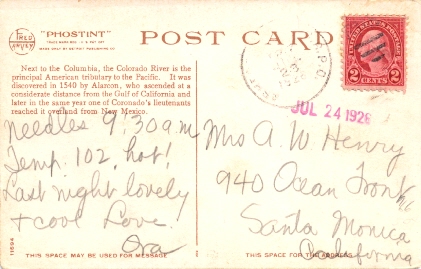 "PHOSTINT"
POST CARD
MADE ONLY BY DETROIT PUBLISHING CO.
Next to the Columbia, the Colorado River is the
principal American tributary to the Pacific. It was
discovered in 1540 by Alarcon, who ascended at a
considerate distance from the Gulf of California and
later in the same year one of Coronado's lieutenants
reached it overland from New Mexico.
Needles 9:30 a.m
Temp. 102, hot!
Last night lovely
+ cool Love
Ora
11604
THIS SPACE MAY BE USED FOR MESSAGE
UNITED STATES POSTAGE
2 CENTS 2
R.P.O.
JUL 24 1926
Mrs A. W. Henry
940 Ocean Front
Santa Monica
California
THIS SPACE FOR THE ADDRESS